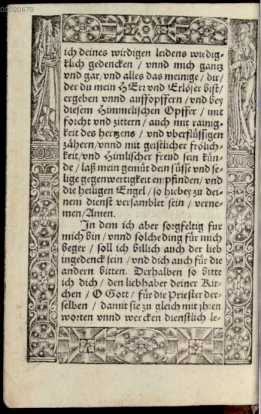 ich deines wirdigen leidens wirdig-
klich gedencken / vnnd mich gantz
vnd gar, vnd alles das meinige / dir /
der du mein HErr vnd Erlöser bist /
ergeben vnnd auffopffern / vnd bey
disem Himmelischen Opffer / mit
forcht vnd zittern / auch mit rainig-
keit des hertzens / vnd vberflüssigen
zähern / vnnd mit geistlicher frölich-
keit / vnd Himlischer freud sein kün-
de / laß mein gemüt dein süsse vnd se-
lige gegenwertigkeit empfinden / vnd
die heiligen Engel / so hiebey zu dei-
nem dienst versamblet sein / verne-
men / Amen.
In dem ich aber sorgfeltig für
mich bin / vnnd solches ding für mich
beger / soll ich billich auch der lieb
ingedenck sein / vnd dich auch für die
andern bitten. Derhalben so bitte
ich dich / den liebhaber deiner Kir-
chen / O Gott / für die Priester der-
selben / damit sie zu gleich mit jhren
worten vnnd wercken dienstlich le-